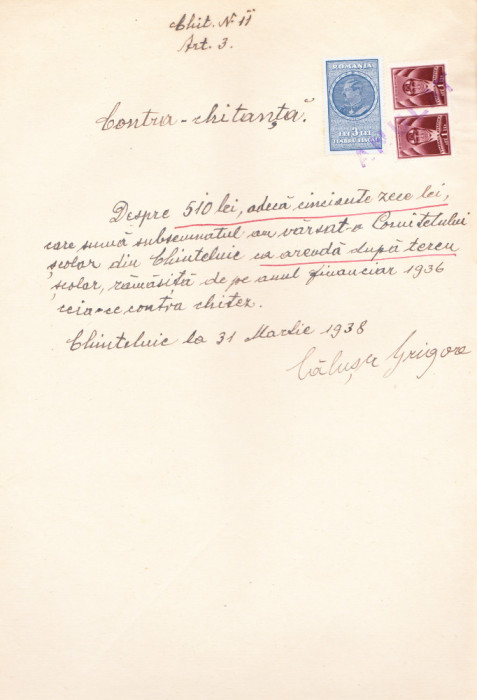 Chit. N. 11
Art. 3.
ROMÂNIA
LEI 3 LEI
TIMBRU FISCAL
Contra-chitanță.
Despre 510 lei, adecă cincisute zece lei,
care sumă subsemnatul am vărsat-o Comitetului
școlar din Chintelnic ca arendă după teren
școlar, rămășiță de pe anul financiar 1936
ceia-ce contra chitez.
Chintelnic la 31 Martie 1938
Călușer Grigore